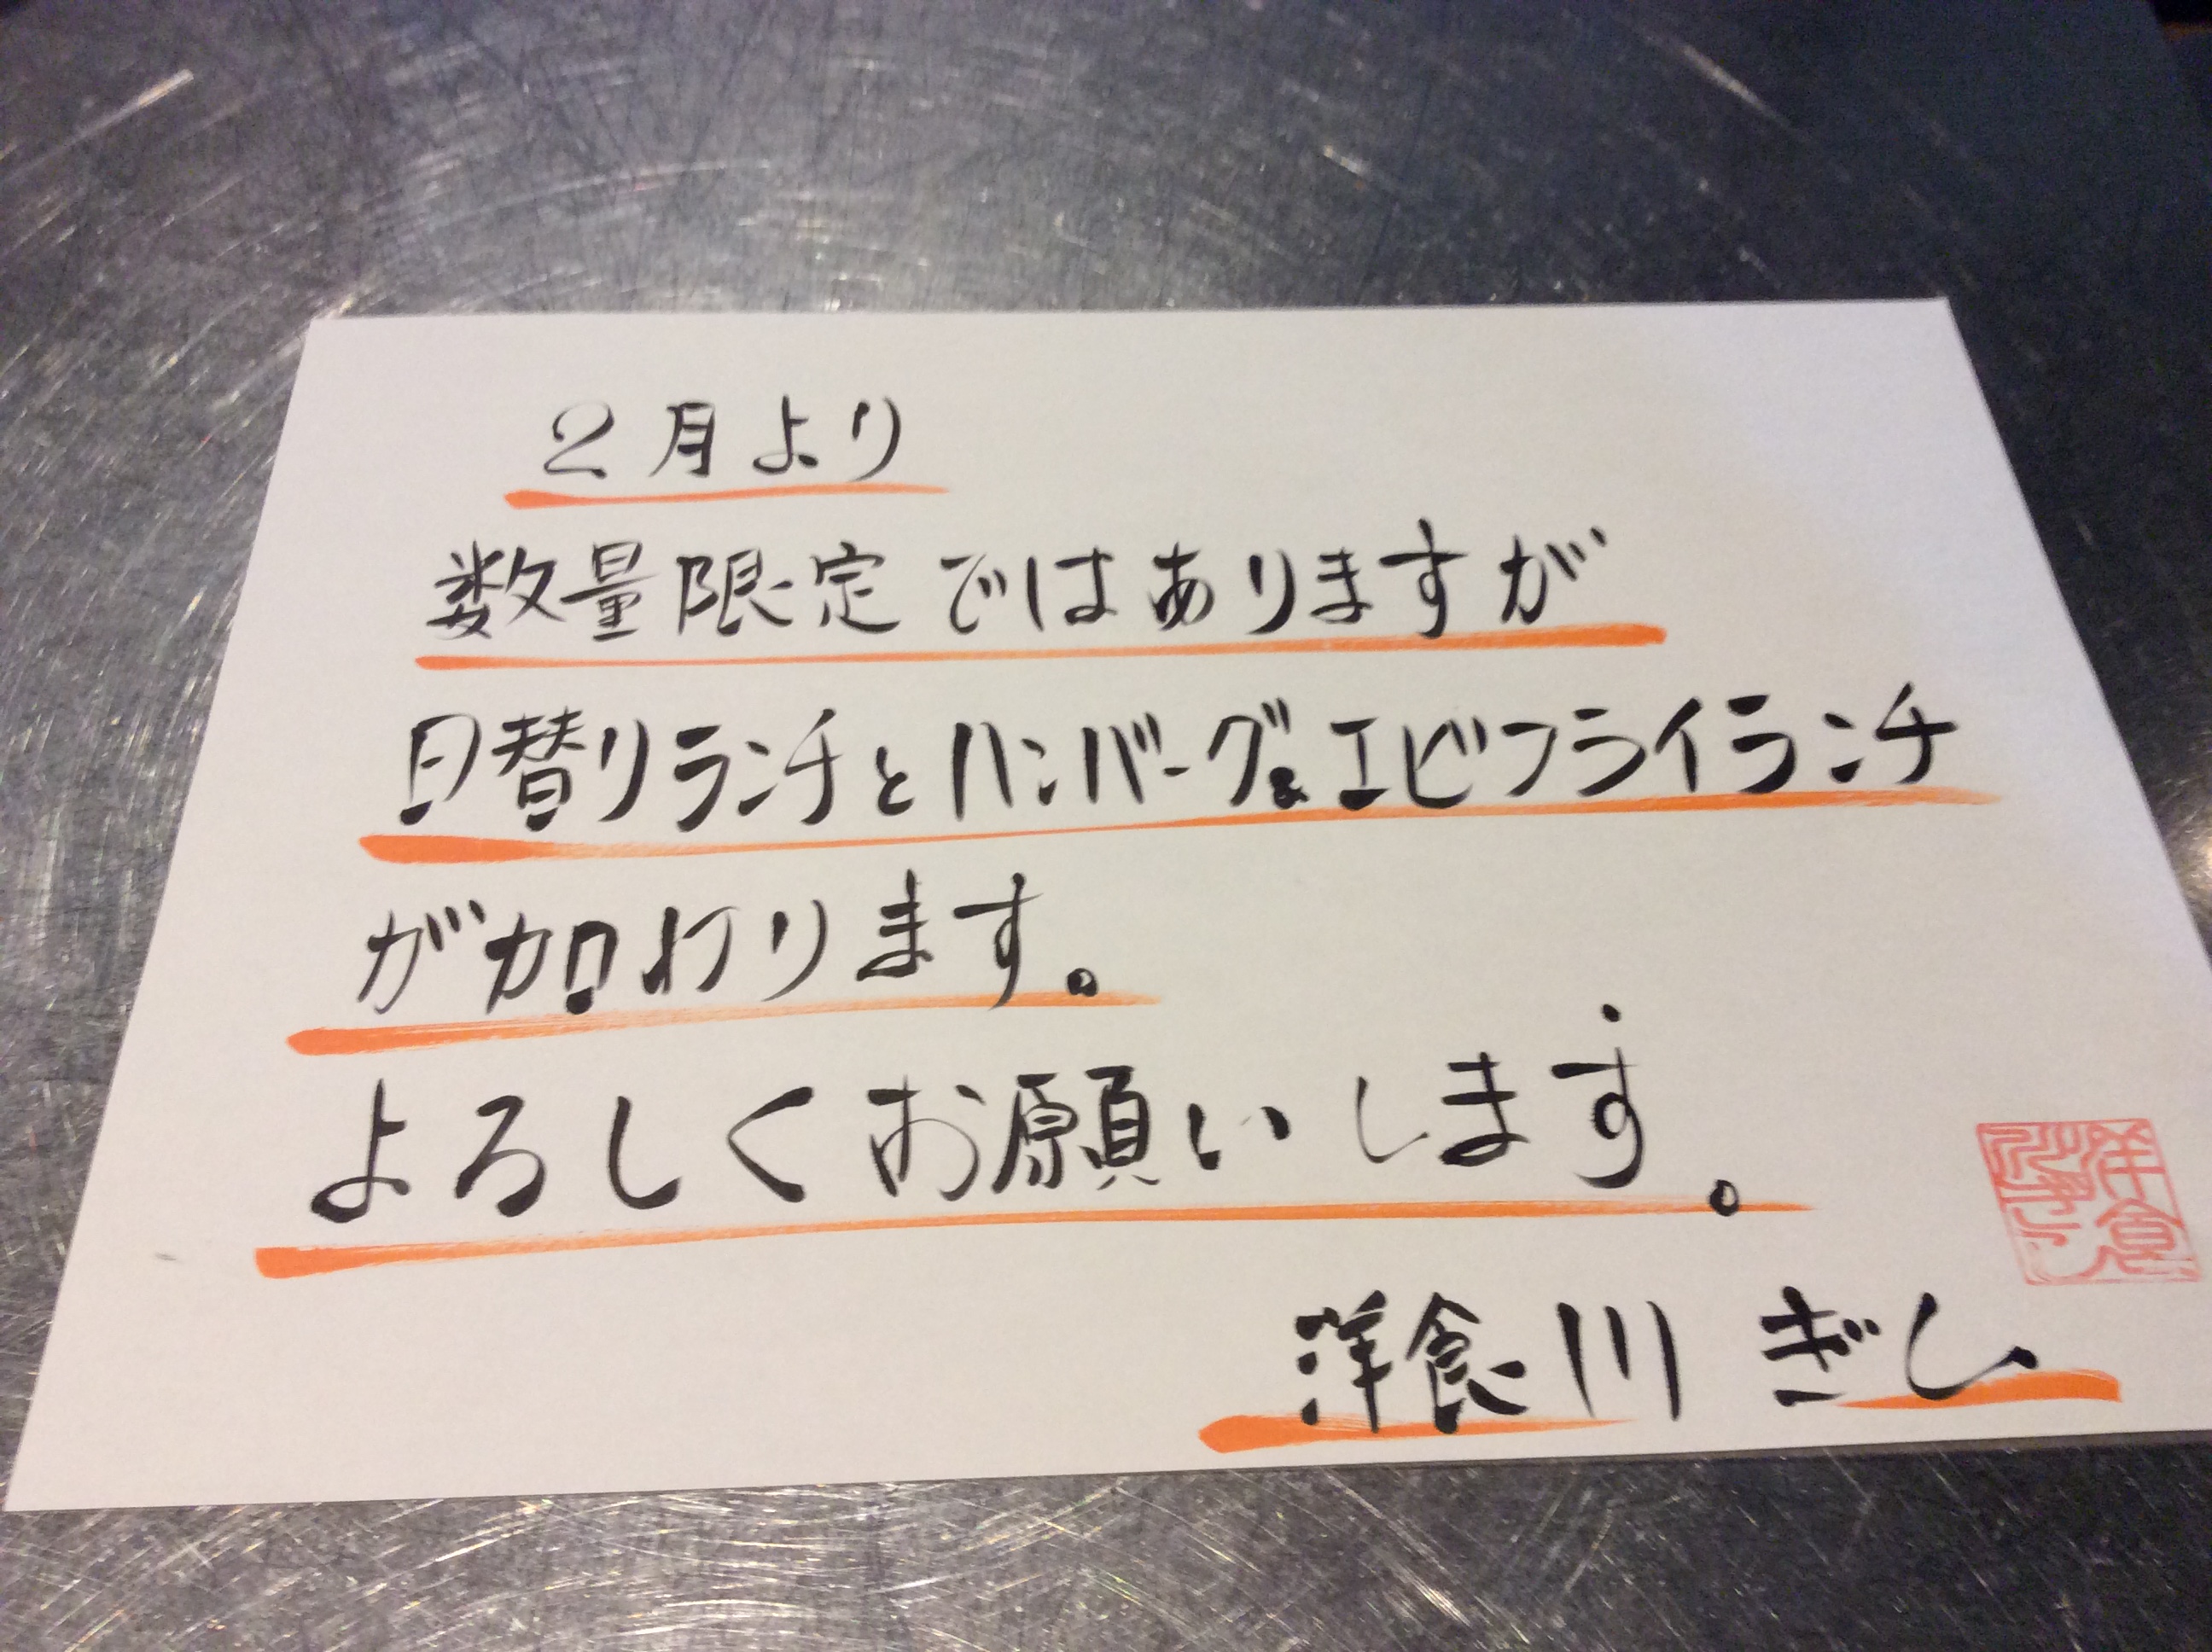 2月より
数量限定ではありますが
日替りランチとハンバーグ&エビフライランチ
が加わります。
よろしくお願いします。
洋食
洋食川ぎし